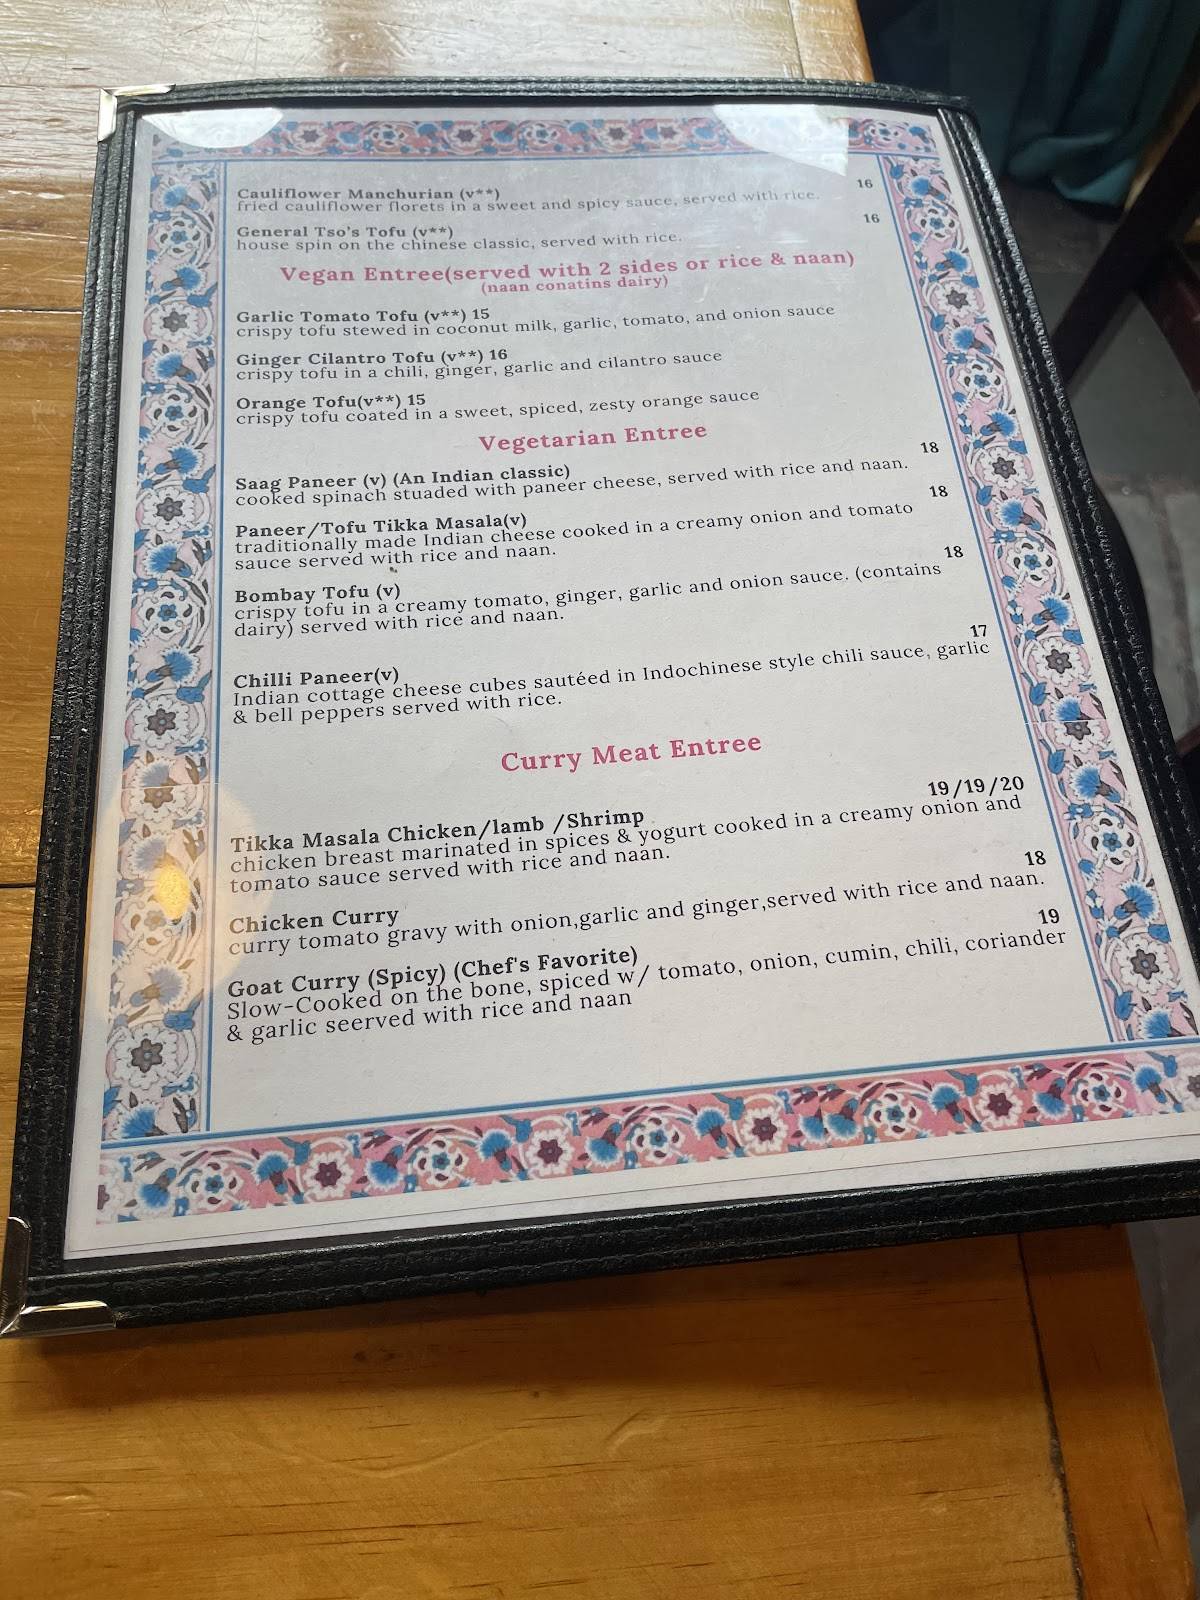 Cauliflower Manchurian (v**) 16
fried cauliflower florets in a sweet and spicy sauce, served with rice.
General Tso's Tofu (v**) 16
house spin on the chinese classic, served with rice.
Vegan Entree(served with 2 sides or rice & naan)
(naan conatins dairy)
Garlic Tomato Tofu (v**) 15
crispy tofu stewed in coconut milk, garlic, tomato, and onion sauce
Ginger Cilantro Tofu (v**) 16
crispy tofu in a chili, ginger, garlic and cilantro sauce
Orange Tofu(v**) 15
crispy tofu coated in a sweet, spiced, zesty orange sauce
Vegetarian Entree
Saag Paneer (v) (An Indian classic) 18
cooked spinach stuaded with paneer cheese, served with rice and naan.
Paneer/Tofu Tikka Masala(v) 18
traditionally made Indian cheese cooked in a creamy onion and tomato
sauce served with rice and naan.
Bombay Tofu (v) 18
crispy tofu in a creamy tomato, ginger, garlic and onion sauce. (contains
dairy) served with rice and naan.
Chilli Paneer(v) 17
Indian cottage cheese cubes sautéed in Indochinese style chili sauce, garlic
& bell peppers served with rice.
Curry Meat Entree
Tikka Masala Chicken/lamb /Shrimp 19/19/20
chicken breast marinated in spices & yogurt cooked in a creamy onion and
tomato sauce served with rice and naan.
Chicken Curry 18
curry tomato gravy with onion,garlic and ginger,served with rice and naan.
Goat Curry (Spicy) (Chef's Favorite) 19
Slow-Cooked on the bone, spiced w/ tomato, onion, cumin, chili, coriander
& garlic seerved with rice and naan